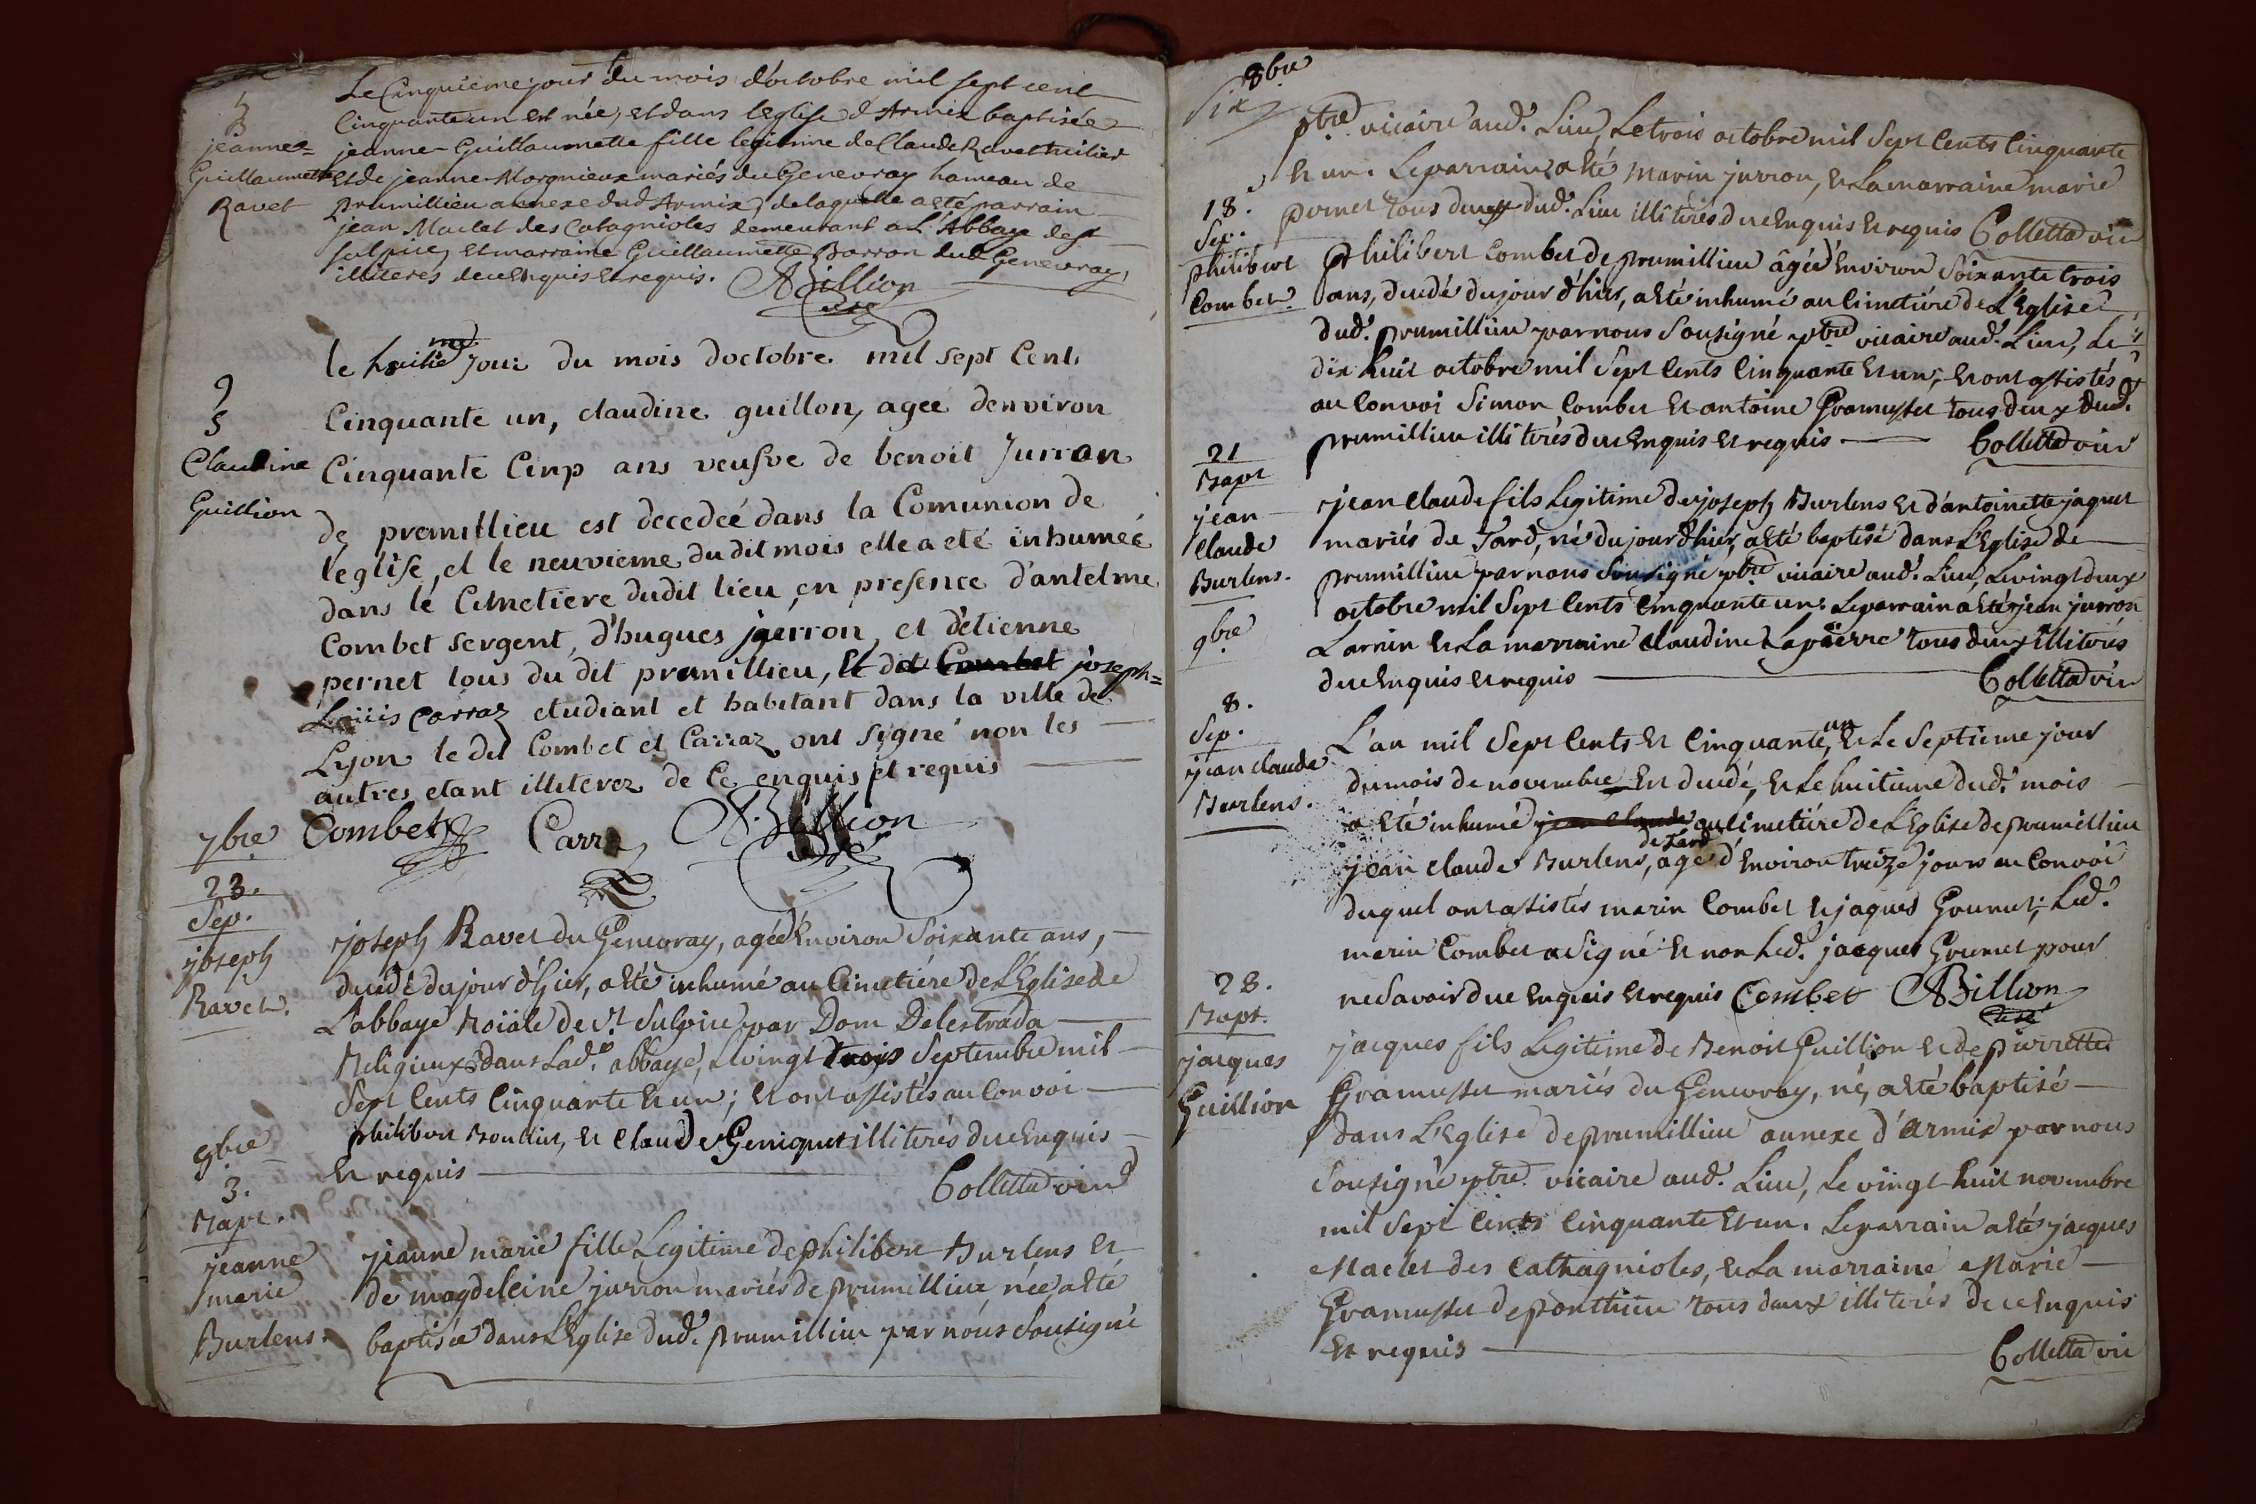 5
jeanne=
Guillaumette
Ravet
Le Cinquieme jour du mois d'octobre mil sept cent
Cinquante un est née, et dans l'eglise d'Armix baptisée
jeanne-Guillaumette fille legitime de Claude Ravet tuilier
et de jeanne Morgnieux mariés du Genevray hameau de
prumillieu annexe dud Armix, de laquelle a eté parrain
jean Maclet des Catagnioles demeurant a L'Abbaye de st
sulpice, et marraine Guillaumette Barron dud Genevray,
illiteres de ce enquis et requis. ABillion
curé
9
5
Claudine
Guillion
le huitieme jour du mois doctobre mil sept Cent
Cinquante un, claudine guillon, agee denviron
Cinquante Cinp ans veufve de benoit Jurron
de premillieu est decedeé dans la Comunion de
l'eglise, et le neuvieme du dit mois elle a eté inhumeé
dans le Cimetiere dudit lieu, en presence d'antelme
Combet sergent, d'hugues jurron, et d'etienne
pernet tous du dit premillieu, et de joseph=
Louis Carraz etudiant et habitant dans la ville de
Lyon le dit Combet et Carraz ont signé non les
autres etant illiterez de Ce enquis et requis
Combet Carra ABillion
curé
7bre
23.
Sep.
joseph
Ravet.
joseph Ravet du Genevray, agé d'Environ Soixante ans,
decedé du jour d'hier, a eté inhumé au Cimetiére de L'Eglise de
L'abbaye Roïale de St Sulpice par Dom Delestrada
Religieux dans Lad.e abbaye, Le vingt trois Septembre mil
Sept Cents Cinquante Et un; Et ont assistés au Convoi
philibert Bouttin, Et Claude Geniquet illiterés de ce Enquis
Et requis Colletta vic
9bre
3.
Bapt.
jeanne
marie
Burlens.
jeanne marie fille Legitime de philibert Burlens Et
de magdeleine jurron mariés de prumillieu, née, a eté
baptisée dans L'Eglise dud. prumillieu par nous Sousigné
8bre
Six
ptre vicaire aud. Lieu, Le trois octobre mil Sept Cents Cinquante
Et un. Le parrain a eté Marin jurron, Et La marraine marie
pernet tous deux dud. Lieu illiterés de ce Enquis Et requis Colletta vic
18.
Sep.
philibert
Combet
philibert Combet de prumillieu âgé d'Environ Soixante trois
ans, decedé du jour d'hier, a eté inhumé au Cimetiére de L'Eglise
dud. prumillieu par nous Sousigné ptre vicaire aud. Lieu, Le
dix huit octobre mil Sept Cents Cinquante Et un; Et ont assistés
au Convoi Simon Combet Et antoine Gramusset tous deux dud.
prumillieu illiterés de ce Enquis Et requis Colletta vic
21
Bapt
jean
Claude
Burlens.
jean Claude fils Legitime de joseph Burlens Et d'antoinette jaquet
mariés de Tard, né du jour d'hier, a eté baptisé dans L'Eglise de
prumillieu par nous Sousigné ptre vicaire aud. Lieu, Le vingt deux
octobre mil Sept Cents Cinquante un. Le parrain a eté jean jurron
Larnin Et La marraine Claudine Lapierre tous deux illiterés
de ce Enquis Et requis Colletta vic
9bre
8.
Sep.
jean Claude
Burlens.
L'an mil Sept Cents Et Cinquante un, Et Le Septieme jour
du mois de novembre Est decedé, Et Le huitieme dud. mois
a eté inhumé jean Claude au Cimetiére de L'Eglise de prumillieu
jean Claude Burlens de Tard, agé d'Environ treize jours au Convoi
duquel ont assistés marin Combet Et jaques Grumet; Led.
marin Combet a Signé Et non Led. jacques Grumet pour
ne Savoir de ce Enquis Et requis Combet ABillion
curé
28.
Bapt.
jacques
Guillion
jacques fils Legitime de Benoit Guillion Et de pierrette
Gramusset mariés du Genevray, né, a eté baptisé
dans L'Eglise de prumillieu annexe d'Armix par nous
Sousigné ptre vicaire aud. Lieu, Le vingt huit novembre
mil Sept Cents Cinquante Et un. Le parrain a eté jacques
Maclet des Cathagnioles, Et La marraine Marie
Gramusset de ponthieu tous deux illiterés de ce Enquis
Et requis Colletta vic